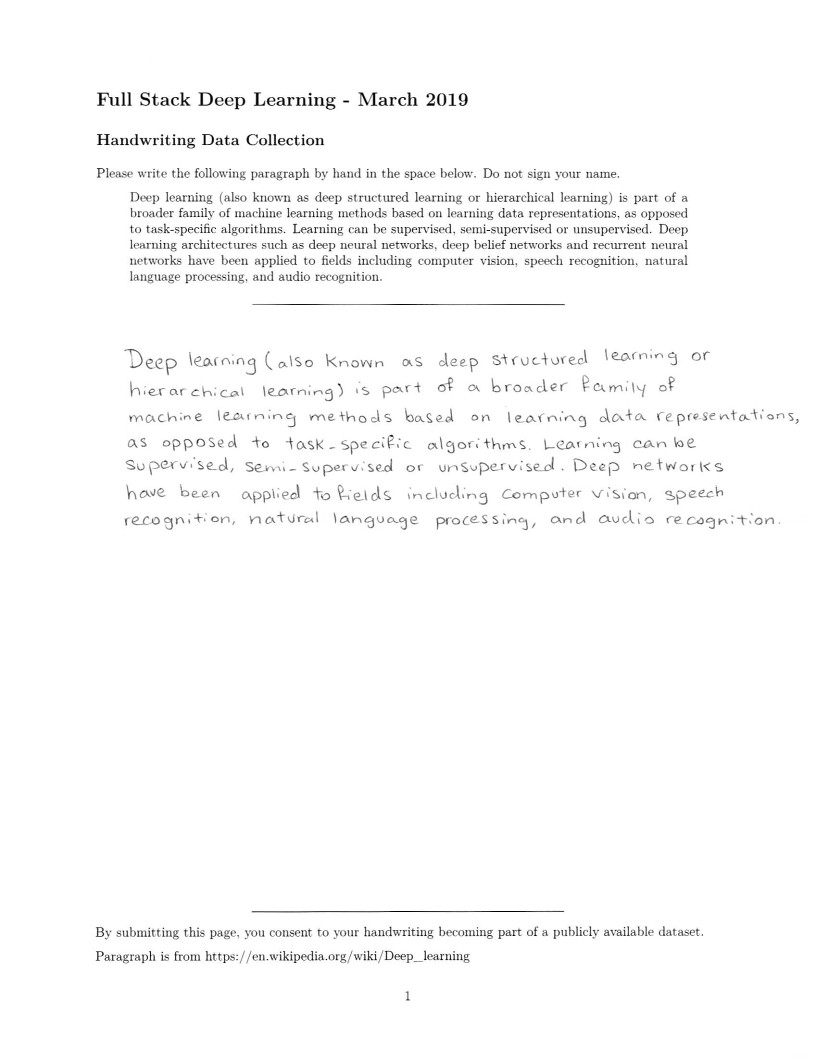 Full Stack Deep Learning - March 2019
Handwriting Data Collection
Please write the following paragraph by hand in the space below. Do not sign your name.
Deep learning (also known as deep structured learning or hierarchical learning) is part of a
broader family of machine learning methods based on learning data representations, as opposed
to task-specific algorithms. Learning can be supervised, semi-supervised or unsupervised. Deep
learning architectures such as deep neural networks, deep belief networks and recurrent neural
networks have been applied to fields including computer vision, speech recognition, natural
language processing, and audio recognition.
Deep learning (also known as deep structured learning or
hierarchical learning) is part of a broader family of
machine learning methods based on learning data representations,
as opposed to task-specific algorithms. Learning can be
supervised, semi-supervised or unsupervised. Deep networks
have been applied to fields including computer vision, speech
recognition, natural language processing, and audio recognition.
By submitting this page, you consent to your handwriting becoming part of a publicly available dataset.
Paragraph is from https://en.wikipedia.org/wiki/Deep_learning
1